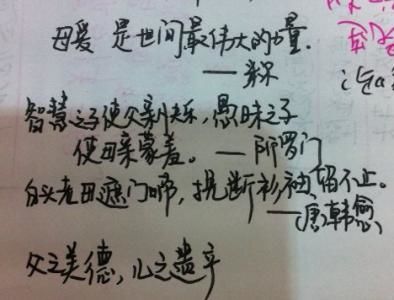 母爱是世间最伟大的力量.
——米尔
智慧之子使父亲快乐,愚昧之子
使母亲蒙羞。——所罗门
白头老母遮门啼,挽断衫袖留不止。
——唐,韩愈
父之美德,儿之遗产